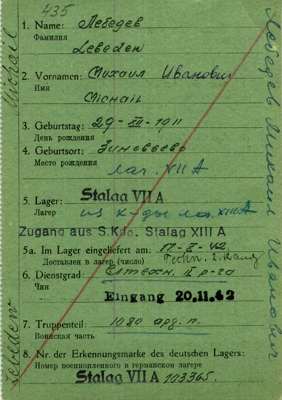 435
1. Name: Лебедев
Фамилия
Lebeden
2. Vornamen: Михаил Иванович
Имя
Michail
3. Geburtstag: 29-XII-1911
День рождения
4. Geburtsort: Зиновьево
Место рождения
лаг. VII A
5. Lager: Stalag VII A
Лагерь из к-ды лаг. XIII A
Zugang aus S.Kdo. Stalag XIII A
5a. Im Lager eingeliefert am: 17-X-42
Доставлен в лагерь (число) Techn. 2. Rang
6. Dienstgrad:
Чин
Eingang 20.11.42
7. Truppenteil: 1080 арт. п.
Воинская часть
8. Nr. der Erkennungsmarke des deutschen Lagers:
Номер военнопленного в германском лагере
Stalag VII A 103365.
Michail
Lebeden
Лебедев Михаил Иванович